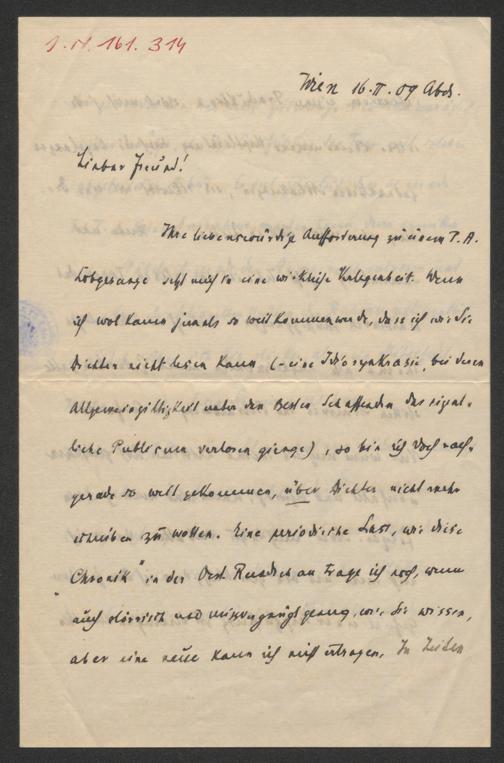 I. N. 161.314
Wien 16. II. 09 Abds.
Lieber Freund!
Ihre liebenswürdige Aufforderung zu einem P. A.
Lobgesange setzt mich in eine wirkliche Verlegenheit. Wenn
ich wol kaum jemals so weit kommen werde, dass ich wie Sie
Dichter nicht lesen kann (– eine Idiosynkrasie, bei deren
Allgemeingiltigkeit unter den besten Schaffenden das eigent-
liche Publicum verloren gienge), so bin ich doch nach-
gerade so weit gekommen, über Dichter nicht mehr
schreiben zu wollen. Eine periodische Last, wie diese
„Chronik" in der Oest. Rundschau trage ich noch, wenn
auch störrisch und missvergnügt genug, wie Sie wissen,
aber eine neue kann ich nicht ertragen. In Zeiten